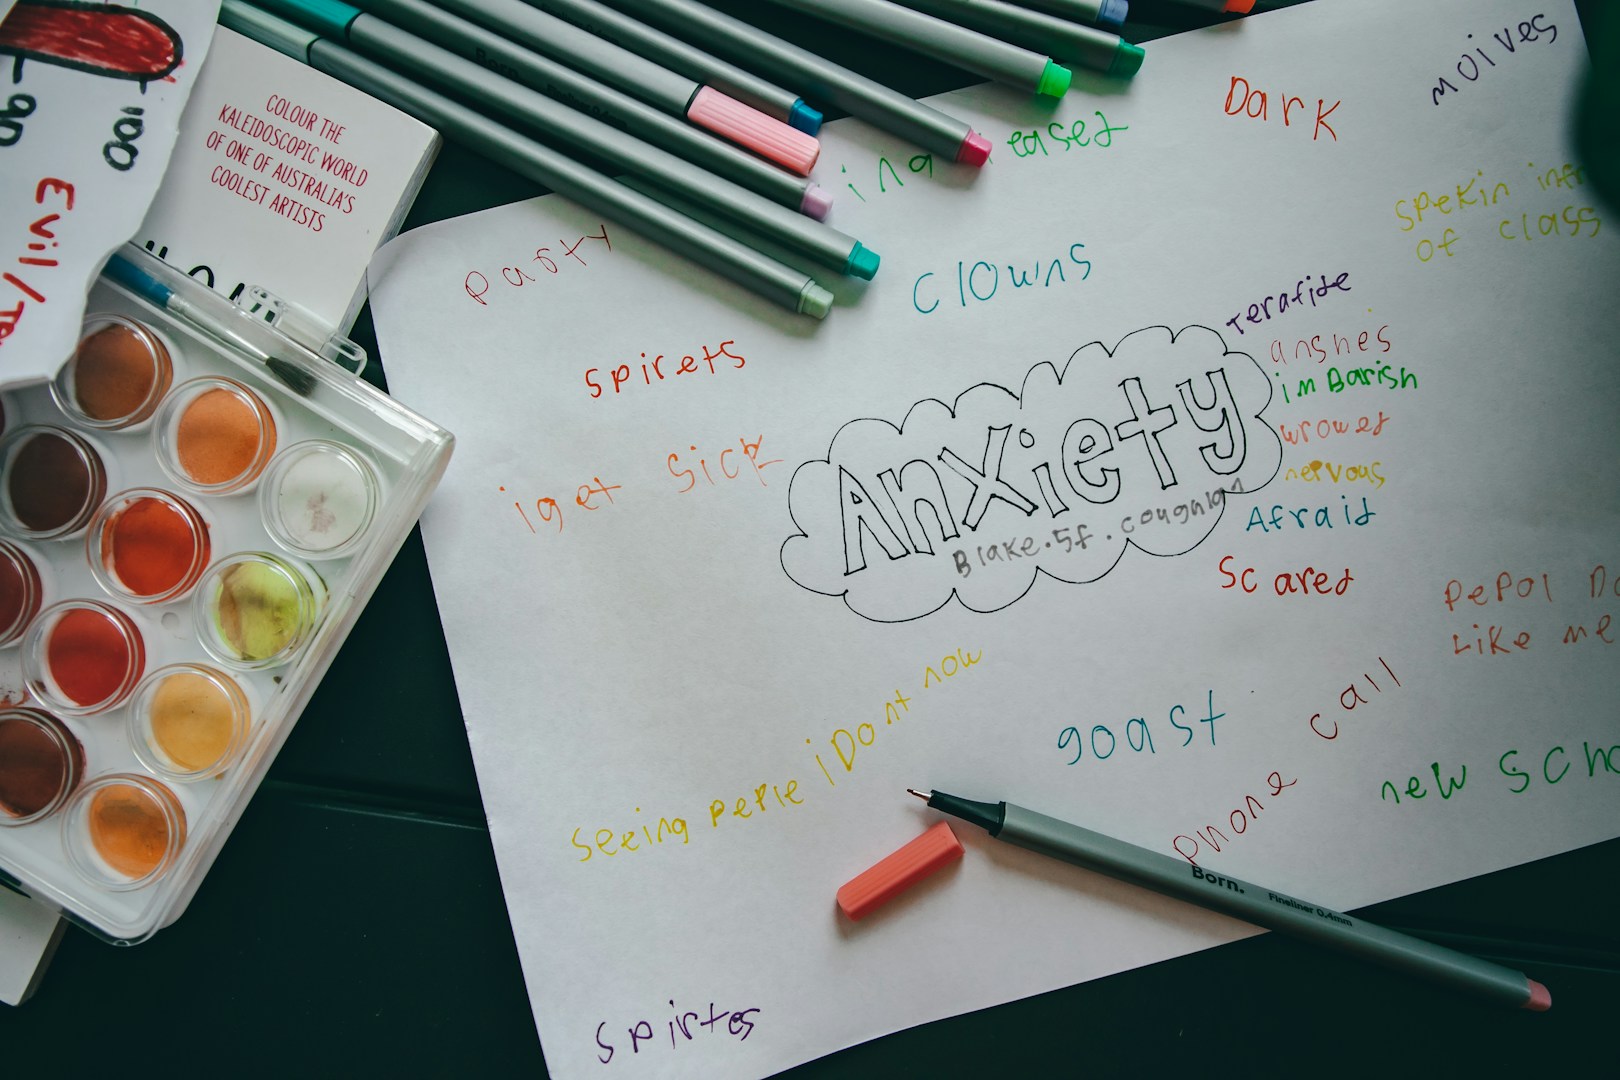 -90
-100
Evil/
COLOUR THE
KALEIDOSCOPIC WORLD
OF ONE OF AUSTRALIA'S
COOLEST ARTISTS
Born.
moives
Dark
easet
ina
spekin
of class
party
Clowns
terafide
spirets
anshes
imBarish
Anxiety
wrowet
iget sick
nervous
Blake.5f.
Afraid
Scared
pepol
Like me
seeing peple iDont now
goast
phone call
new
Born.
Fineliner 0.4mm
spirtes